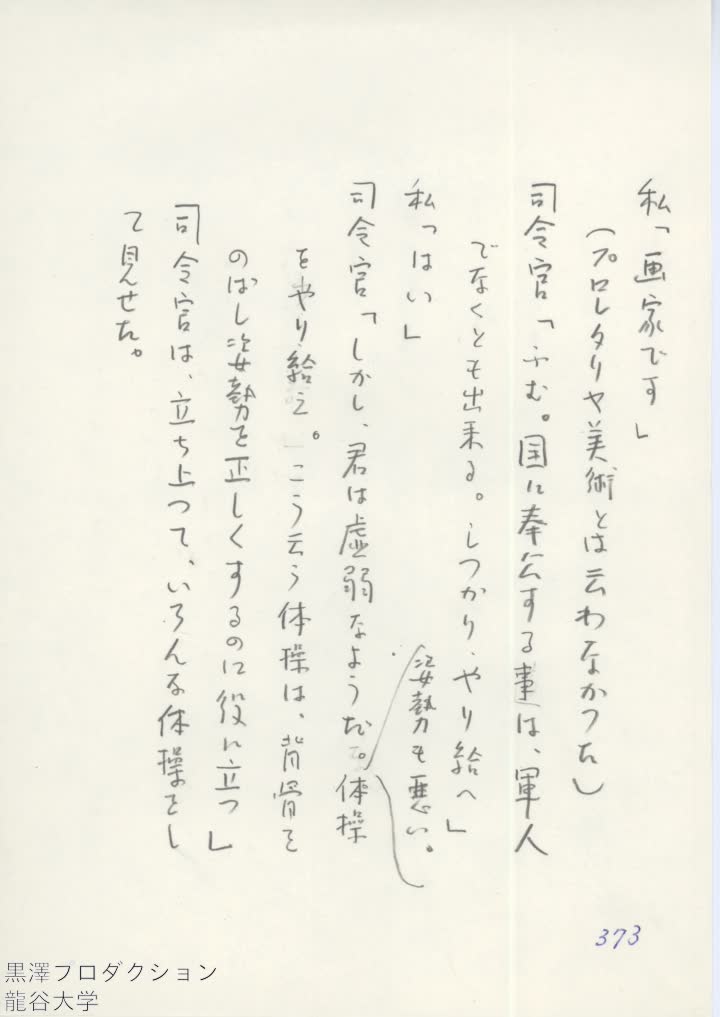 私「画家です」
(プロレタリヤ美術とは云わなかつた)
司令官「ふむ。国に奉公する事は、軍人
でなくとも出来る。しつかり、やり給へ」
私「はい」
姿勢も悪い。
司令官「しかし、君は虚弱なようだ。体操
をやり給え。こう云う体操は、背骨を
のばし姿勢を正しくするのに役に立つ」
司令官は、立ち上つて、いろんな体操をし
て見せた。
373
黒澤プロダクション
龍谷大学